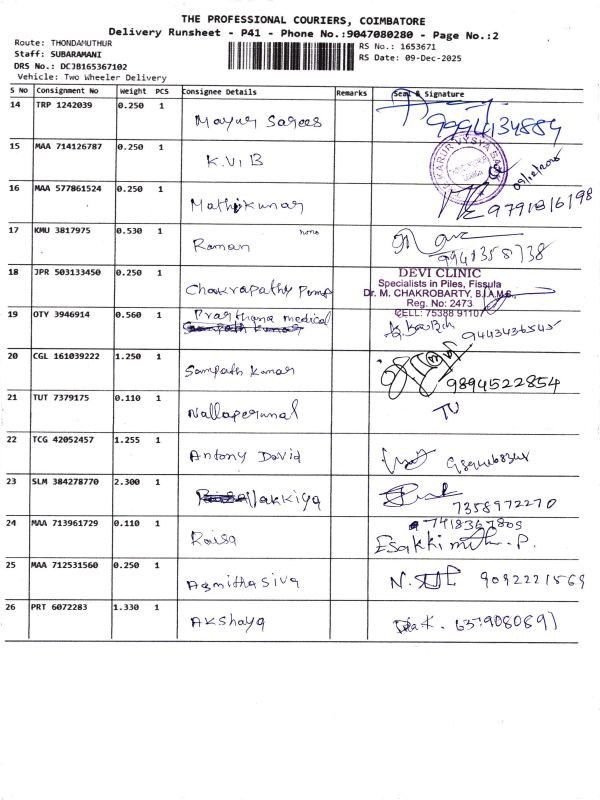 THE PROFESSIONAL COURIERS, COIMBATORE
Delivery Runsheet - P41 - Phone No.:9047080280 - Page No.:2
Route: THONDAMUTHUR
Staff: SUBARAMANI
DRS No.: DCJB165367102
Vehicle: Two Wheeler Delivery
RS No.: 1653671
RS Date: 09-Dec-2025
S No Consignment No Weight PCS Consignee Details Remarks Seal & Signature
14 TRP 1242039 0.250 1 Mayur Sarees
15 MAA 714126787 0.250 1 K.V.I B KARUR VYSYA
16 MAA 577861524 0.250 1 Mathikumar 9791816198
17 KMU 3817975 0.530 1 Raman
18 JPR 503133450 0.250 1 Chakrapathy Pump
DEVI CLINIC
Specialists in Piles, Fissula
Dr. M. CHAKROBARTY, B.I.A.M.S.,
Reg. No: 2473
CELL: 75388 91107
19 OTY 3946914 0.560 1 Prarthana medical 9443436545
20 CGL 161039222 1.250 1 Sampath Kumar 9894522854
21 TUT 7379175 0.110 1 Nallaperumal
22 TCG 42052457 1.255 1 Antony David
23 SLM 384278770 2.300 1 Ilakkiya 7358972270
24 MAA 713961729 0.110 1 Raisa
25 MAA 712531560 0.250 1 Asmithasiva 9092221569
26 PRT 6072283 1.330 1 Akshaya